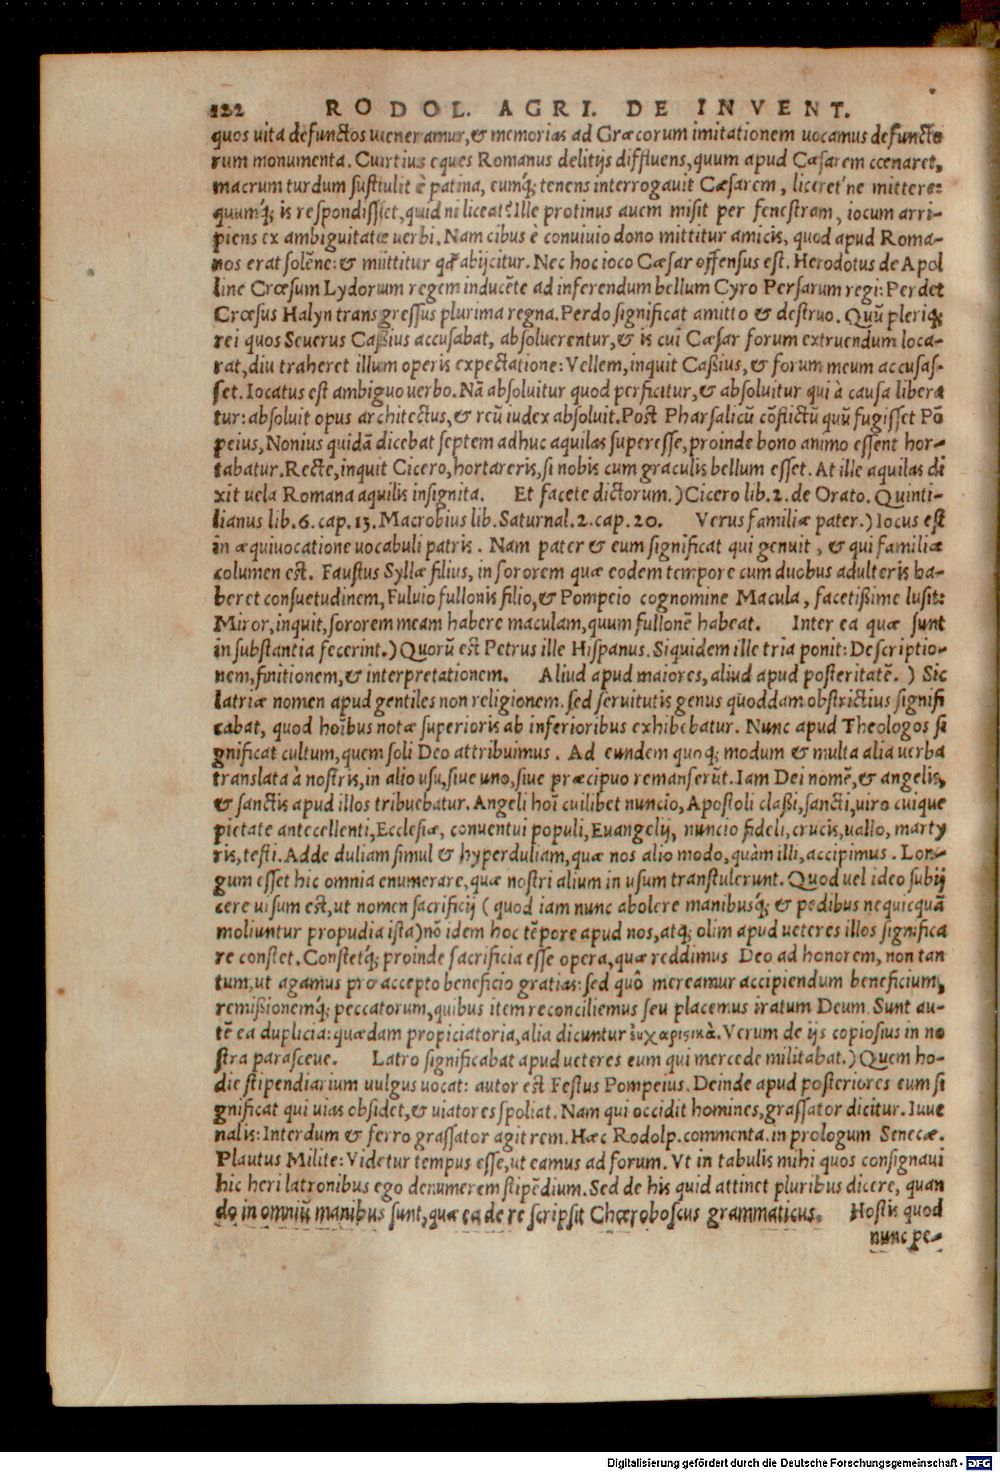 122 RODOL. AGRI. DE INVENT.
quos uita defunctos ueneramur, & memorias ad Græcorum imitationem uocamus defuncto
rum monumenta. Curtius eques Romanus delitijs diffluens, quum apud Cæsarem cœnaret,
macrum turdum sustulit è patina, eumq́; tenens interrogauit Cæsarem, liceret'ne mittere:
quumq́; is respondisset, quid ni liceat? Ille protinus auem misit per fenestram, iocum arri-
piens ex ambiguitatæ uerbi. Nam cibus è conuiuio dono mittitur amicis, quod apud Roma-
nos erat solẽne: & mittitur qđ abijcitur. Nec hoc ioco Cæsar offensus est. Herodotus de Apol
line Crœsum Lydorum regem inducẽte ad inferendum bellum Cyro Persarum regi: Perdet
Crœsus Halyn transgressus plurima regna. Perdo significat amitto & destruo. Quũ pleriq;
rei quos Seuerus Caßius accusabat, absoluerentur, & is cui Cæsar forum extruendum loca-
rat, diu traheret illum operis expectatione: Vellem, inquit Caßius, & forum meum accusas-
set. Iocatus est ambiguo uerbo. Nã absoluitur quod perficitur, & absoluitur qui à causa libera
tur: absoluit opus architectus, & reũ iudex absoluit. Post Pharsalicũ cõflictũ quũ fugisset Põ
peius, Nonius quidã dicebat septem adhuc aquilas superesse, proinde bono animo essent hor-
tabatur. Recte, inquit Cicero, hortareris, si nobis cum graculis bellum esset. At ille aquilas di
xit uela Romana aquilis insignita. Et facete dictorum.) Cicero lib. 2. de Orato. Quinti-
lianus lib. 6. cap. 13. Macrobius lib. Saturnal. 2. cap. 20. Verus familiæ pater.) Iocus est
in æquiuocatione uocabuli patris. Nam pater & eum significat qui genuit, & qui familiæ
columen est. Faustus Syllæ filius, in sororem quæ eodem tempore cum duobus adulteris ha-
beret consuetudinem, Fuluio fullonis filio, & Pompeio cognomine Macula, facetißime lusit:
Miror, inquit, sororem meam habere maculam, quum fullonẽ habeat. Inter ea quæ sunt
in substantia fecerint.) Quorũ est Petrus ille Hispanus. Siquidem ille tria ponit: Descriptio-
nem, finitionem, & interpretationem. Aliud apud maiores, aliud apud posteritatẽ.) Sic
latriæ nomen apud gentiles non religionem. sed seruitutis genus quoddam obstrictius signifi
cabat, quod hoĩbus notæ superioris ab inferioribus exhibebatur. Nunc apud Theologos si
gnificat cultum, quem soli Deo attribuimus. Ad eundem quoq; modum & multa alia uerba
translata à nostris, in alio usu, siue uno, siue præcipuo remanserũt. Iam Dei nomẽ, & angelis,
& sanctis apud illos tribuebatur. Angeli hoĩ cuilibet nuncio, Apostoli claßi, sancti, uiro cuique
pietate antecellenti, Ecclesiæ, conuentui populi, Euangelij, nuncio fideli, crucis, uallo, marty
ris, testi. Adde duliam simul & hyperduliam, quæ nos alio modo, quàm illi, accipimus. Lon-
gum esset hic omnia enumerare, quæ nostri alium in usum transtulerunt. Quod uel ideo subij
cere uisum est, ut nomen sacrificij (quod iam nunc abolere manibusq́; & pedibus nequicquã
moliuntur propudia ista) nõ idem hoc tẽpore apud nos, atq; olim apud ueteres illos significa
re constet. Constetq́; proinde sacrificia esse opera, quæ reddimus Deo ad honorem, non tan
tum, ut agamus pro accepto beneficio gratias: sed quõ mereamur accipiendum beneficium,
remißionemq́; peccatorum, quibus item reconciliemus seu placemus iratum Deum. Sunt au-
tẽ ea duplicia: quædam propiciatoria, alia dicuntur ἐυχαριςικὰ. Verum de ijs copiosius in no
stra parasceue. Latro significabat apud ueteres eum qui mercede militabat.) Quem ho-
die stipendiarium uulgus uocat: autor est Festus Pompeius. Deinde apud posteriores eum si
gnificat qui uias obsidet, & uiatores spoliat. Nam qui occidit homines, grassator dicitur. Iuue
nalis: Interdum & ferro grassator agit rem. Hæc Rodolp. commenta. in prologum Senecæ.
Plautus Milite: Videtur tempus esse, ut eamus ad forum. Vt in tabulis mihi quos consignaui
hic heri latronibus ego denumerem stipẽdium. Sed de his quid attinet pluribus dicere, quan
do in omniũ manibus sunt, quæ ea de re scripsit Chœroboscus grammaticus. Hostis quod
nunc pe-
Digitalisierung gefördert durch die Deutsche Forschungsgemeinschaft - DFG